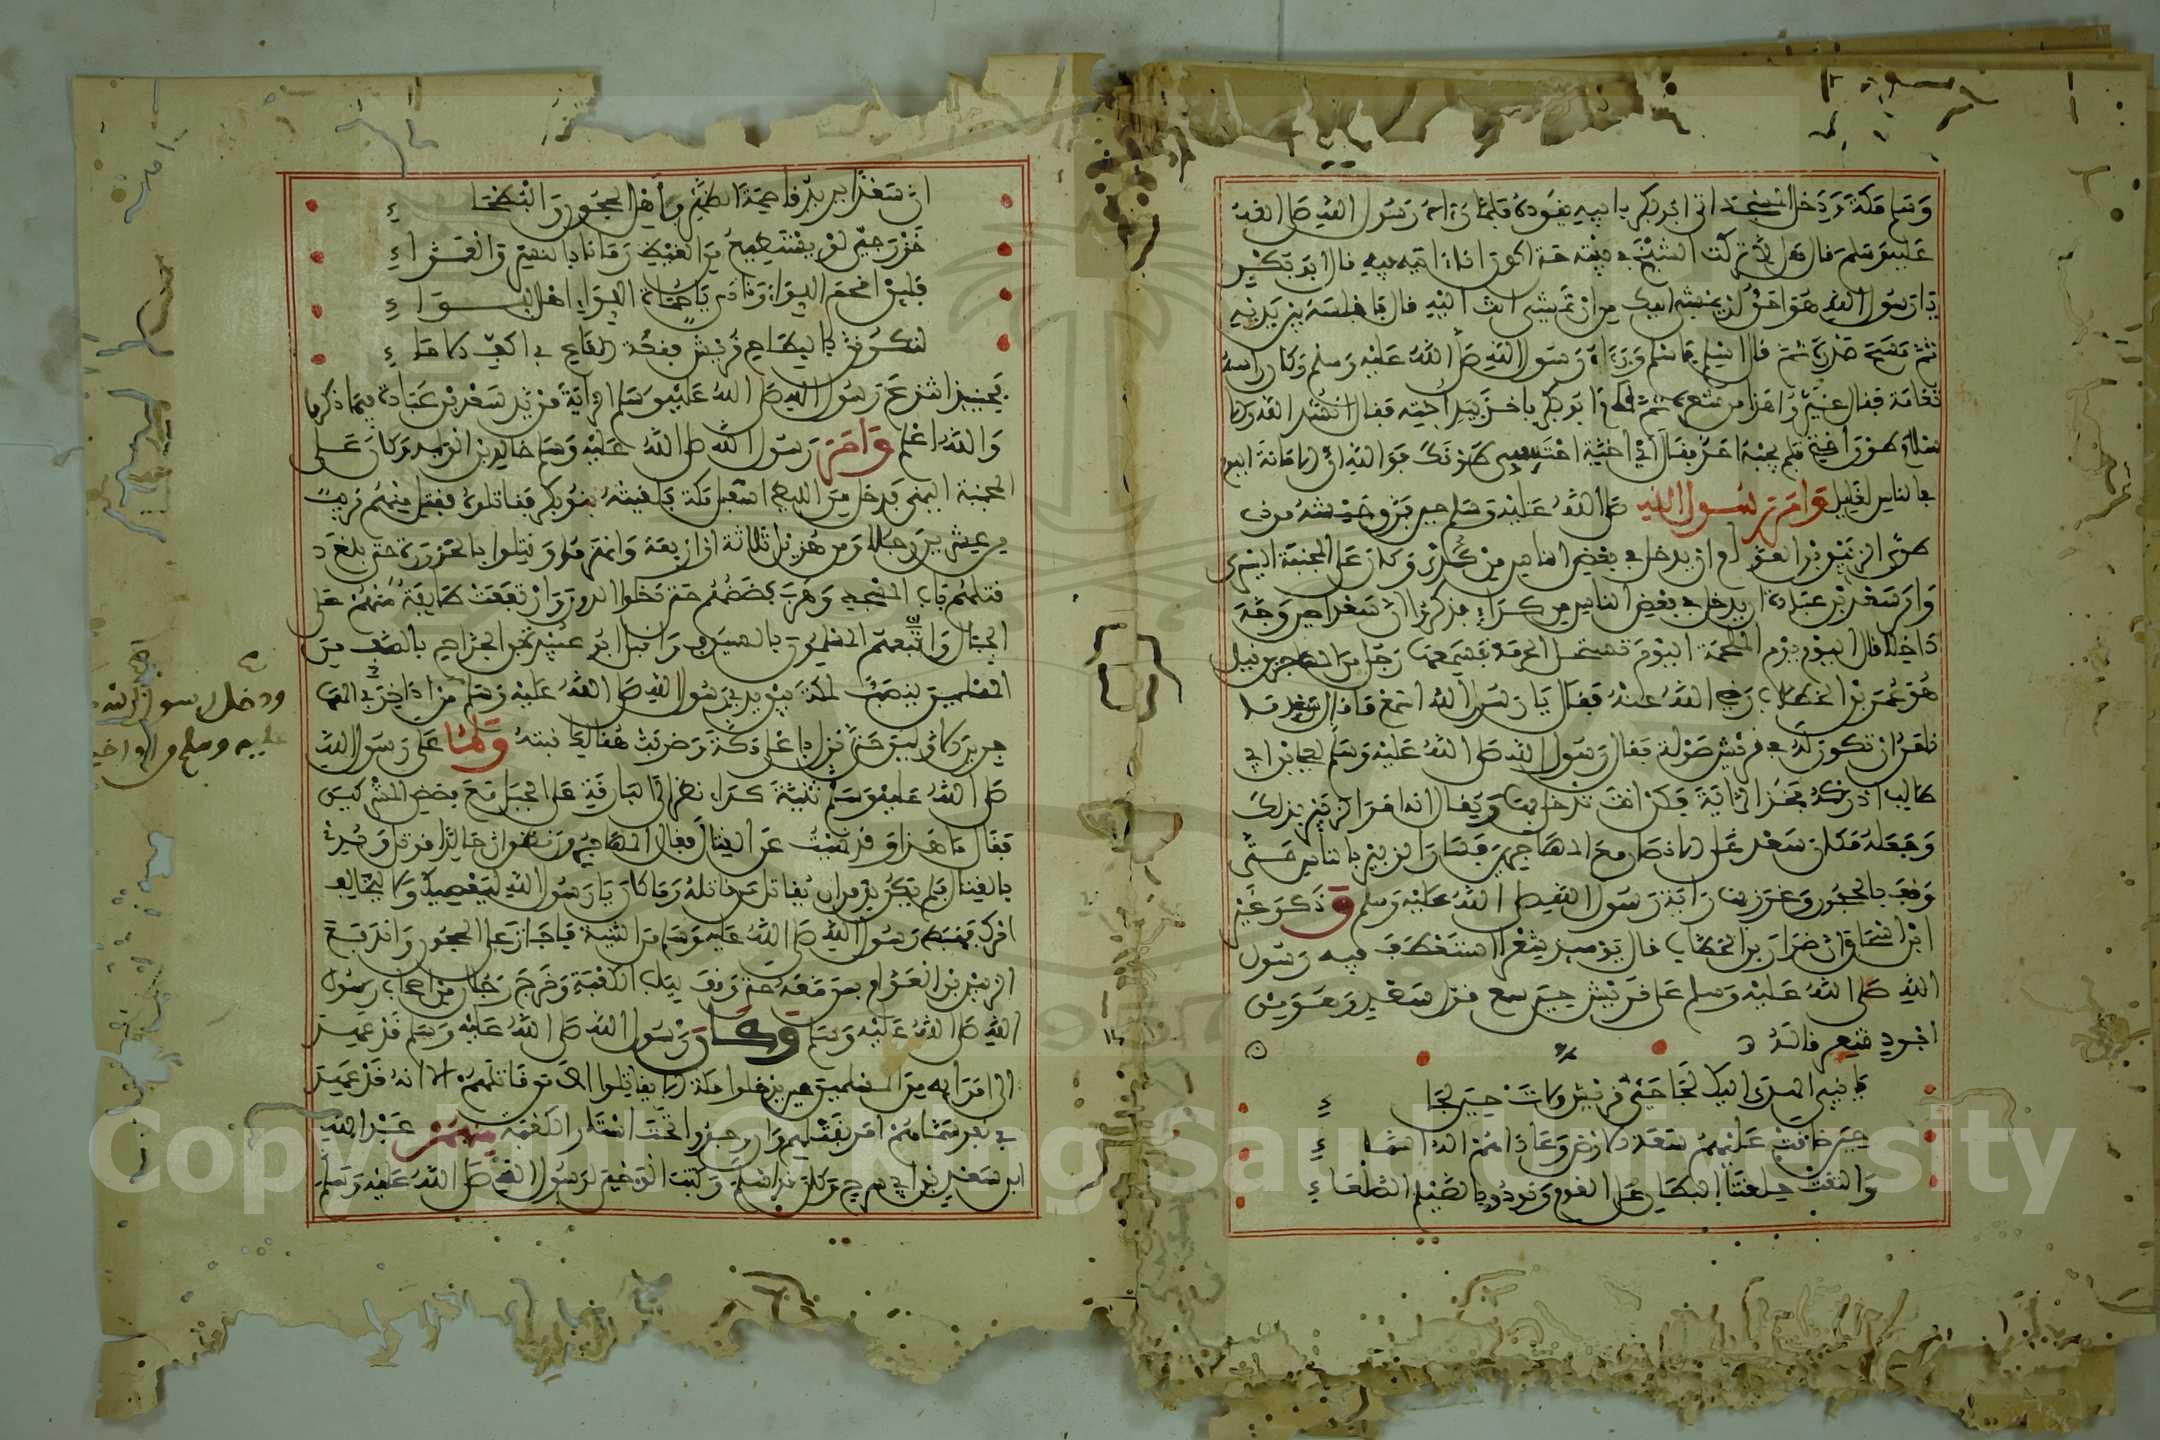 وسلم مكة ودخل المسجد اتى ابو بكر بابيه يقوده فلما رءاه رسول الله صلى الله
عليه وسلم قال هل لا تركت الشيخ في بيته حتى اكون انا ءاتيه فيه قال ابو بكر
يا رسول الله هو احق ان يمشي اليك من ان تمشي انت اليه قال فاجلسه بين يديه
ثم مسح صدره ثم قال اسلم فاسلم ورءاه رسول الله صلى الله عليه وسلم وكان راسه
ثغامة فقال غيروا هذا من شعره ثم قام ابو بكر فاخذ بيد اخته فقال انشد الله والا
سلام طوق اختي فلم يجبه احد فقال اي اخية احتسبي طوقك فوالله ان الامانة اليوم
في الناس لقليل وامر رسول الله صلى الله عليه وسلم حين فرق جيشه من ذي
طوى الزبير بن العوام ان يدخل في بعض الناس من كدى وكان على المجنبة اليسرى
وامر سعد بن عبادة ان يدخل في بعض الناس من كداء فذكروا ان سعدا حين وجه
داخلا قال اليوم يوم الملحمة اليوم تستحل الحرمة فسمعها رجل من المهاجرين قيل
هو عمر بن الخطاب رضي الله عنه فقال يا رسول الله اسمع ما قال سعد ما
نامن ان تكون له في قريش صولة فقال رسول الله صلى الله عليه وسلم لعلي بن ابي
طالب ادركه فخذ الراية فكن انت تدخل بها ويقال انه امر الزبير بذلك
وجعله مكان سعد على الانصار مع المهاجرين فسار الزبير بالناس حتى
وقف بالحجون وغرز بها راية رسول الله صلى الله عليه وسلم وذكر غير
ابن اسحاق ان ضرار بن الخطاب قال يومئذ شعرا استعطف فيه رسول
الله صلى الله عليه وسلم على قريش حين سمع قول سعد وهو من
اجود شعر قاله
يا نبي الهدى اليك لجا حي قريش ولات حين لجاء
حين ضاقت عليهم سعة الارض وعاداهم اله السماء
والتقت حلقتا البطان على القوم ونودوا بالصيلم الصلعاء
ان سعدا يريد قاصمة الظهر باهل الحجون والبطحاء
خزرجي لو يستطيع من الغيظ رمانا بالنسر والعواء
فلئن اقحم اللواء ونادى يا حماة اللواء اهل اللواء
لتكونن بالبطاح قريش فقعة القاع في اكف الاماء
فحينئذ انتزع رسول الله صلى الله عليه وسلم الراية من يد سعد بن عبادة فيما ذكروا
والله اعلم وامر رسول الله صلى الله عليه وسلم خالد بن الوليد وكان على
المجنبة اليمنى فدخل من الليط اسفل مكة فلقيته بنو بكر فقاتلوه فقتل منهم قريب
من عشرين رجلا ومن هذيل ثلاثة او اربعة وانهزموا وقتلوا بالحزورة حتى بلغ
قتلهم باب المسجد وهرب بعضهم حتى دخلوا الدور وارتفعت طايفة منهم على
الجبال واتبعهم المسلمون بالسيوف واقبل ابو عبيدة بن الجراح بالصف من
المسلمين ينصب لمكة بين يدي رسول الله صلى الله عليه وسلم من اذاخر في المها
جرين الاولين حتى نزل باعلى مكة وضربت هنالك قبته ولما علا رسول الله
صلى الله عليه وسلم ثنية كداء نظر الى البارقة على الجبل مع بعض المشركين
فقال ما هذا وقد نهيت عن القتال فقال المهاجرون نظن ان خالدا قوتل وبدئ
بالقتال فلم يكن له بد من ان يقاتل من قاتله وما كان يا رسول الله ليعصيك ولا ليخالف
امرك فهبط رسول الله صلى الله عليه وسلم من الثنية فاجاز على الحجون واندفع
الزبير بن العوام بمن معه حتى وقف بباب الكعبة وجرح رجلان من اصحاب رسول
الله صلى الله عليه وسلم وكان رسول الله صلى الله عليه وسلم قد عهد
الى امرايه من المسلمين حين يدخلوا مكة الا يقاتلوا الا من قاتلهم الا انه قد عهد
في نفر سماهم امر بقتلهم وان وجدوا تحت استار الكعبة منهم عبد الله
ابن سعد بن ابي سرح وكان قد اسلم وكتب الوحي لرسول الله صلى الله عليه وسلم
ودخل رسول الله
عليه وسلم من اذاخر
Copyright © King Saud University
1957